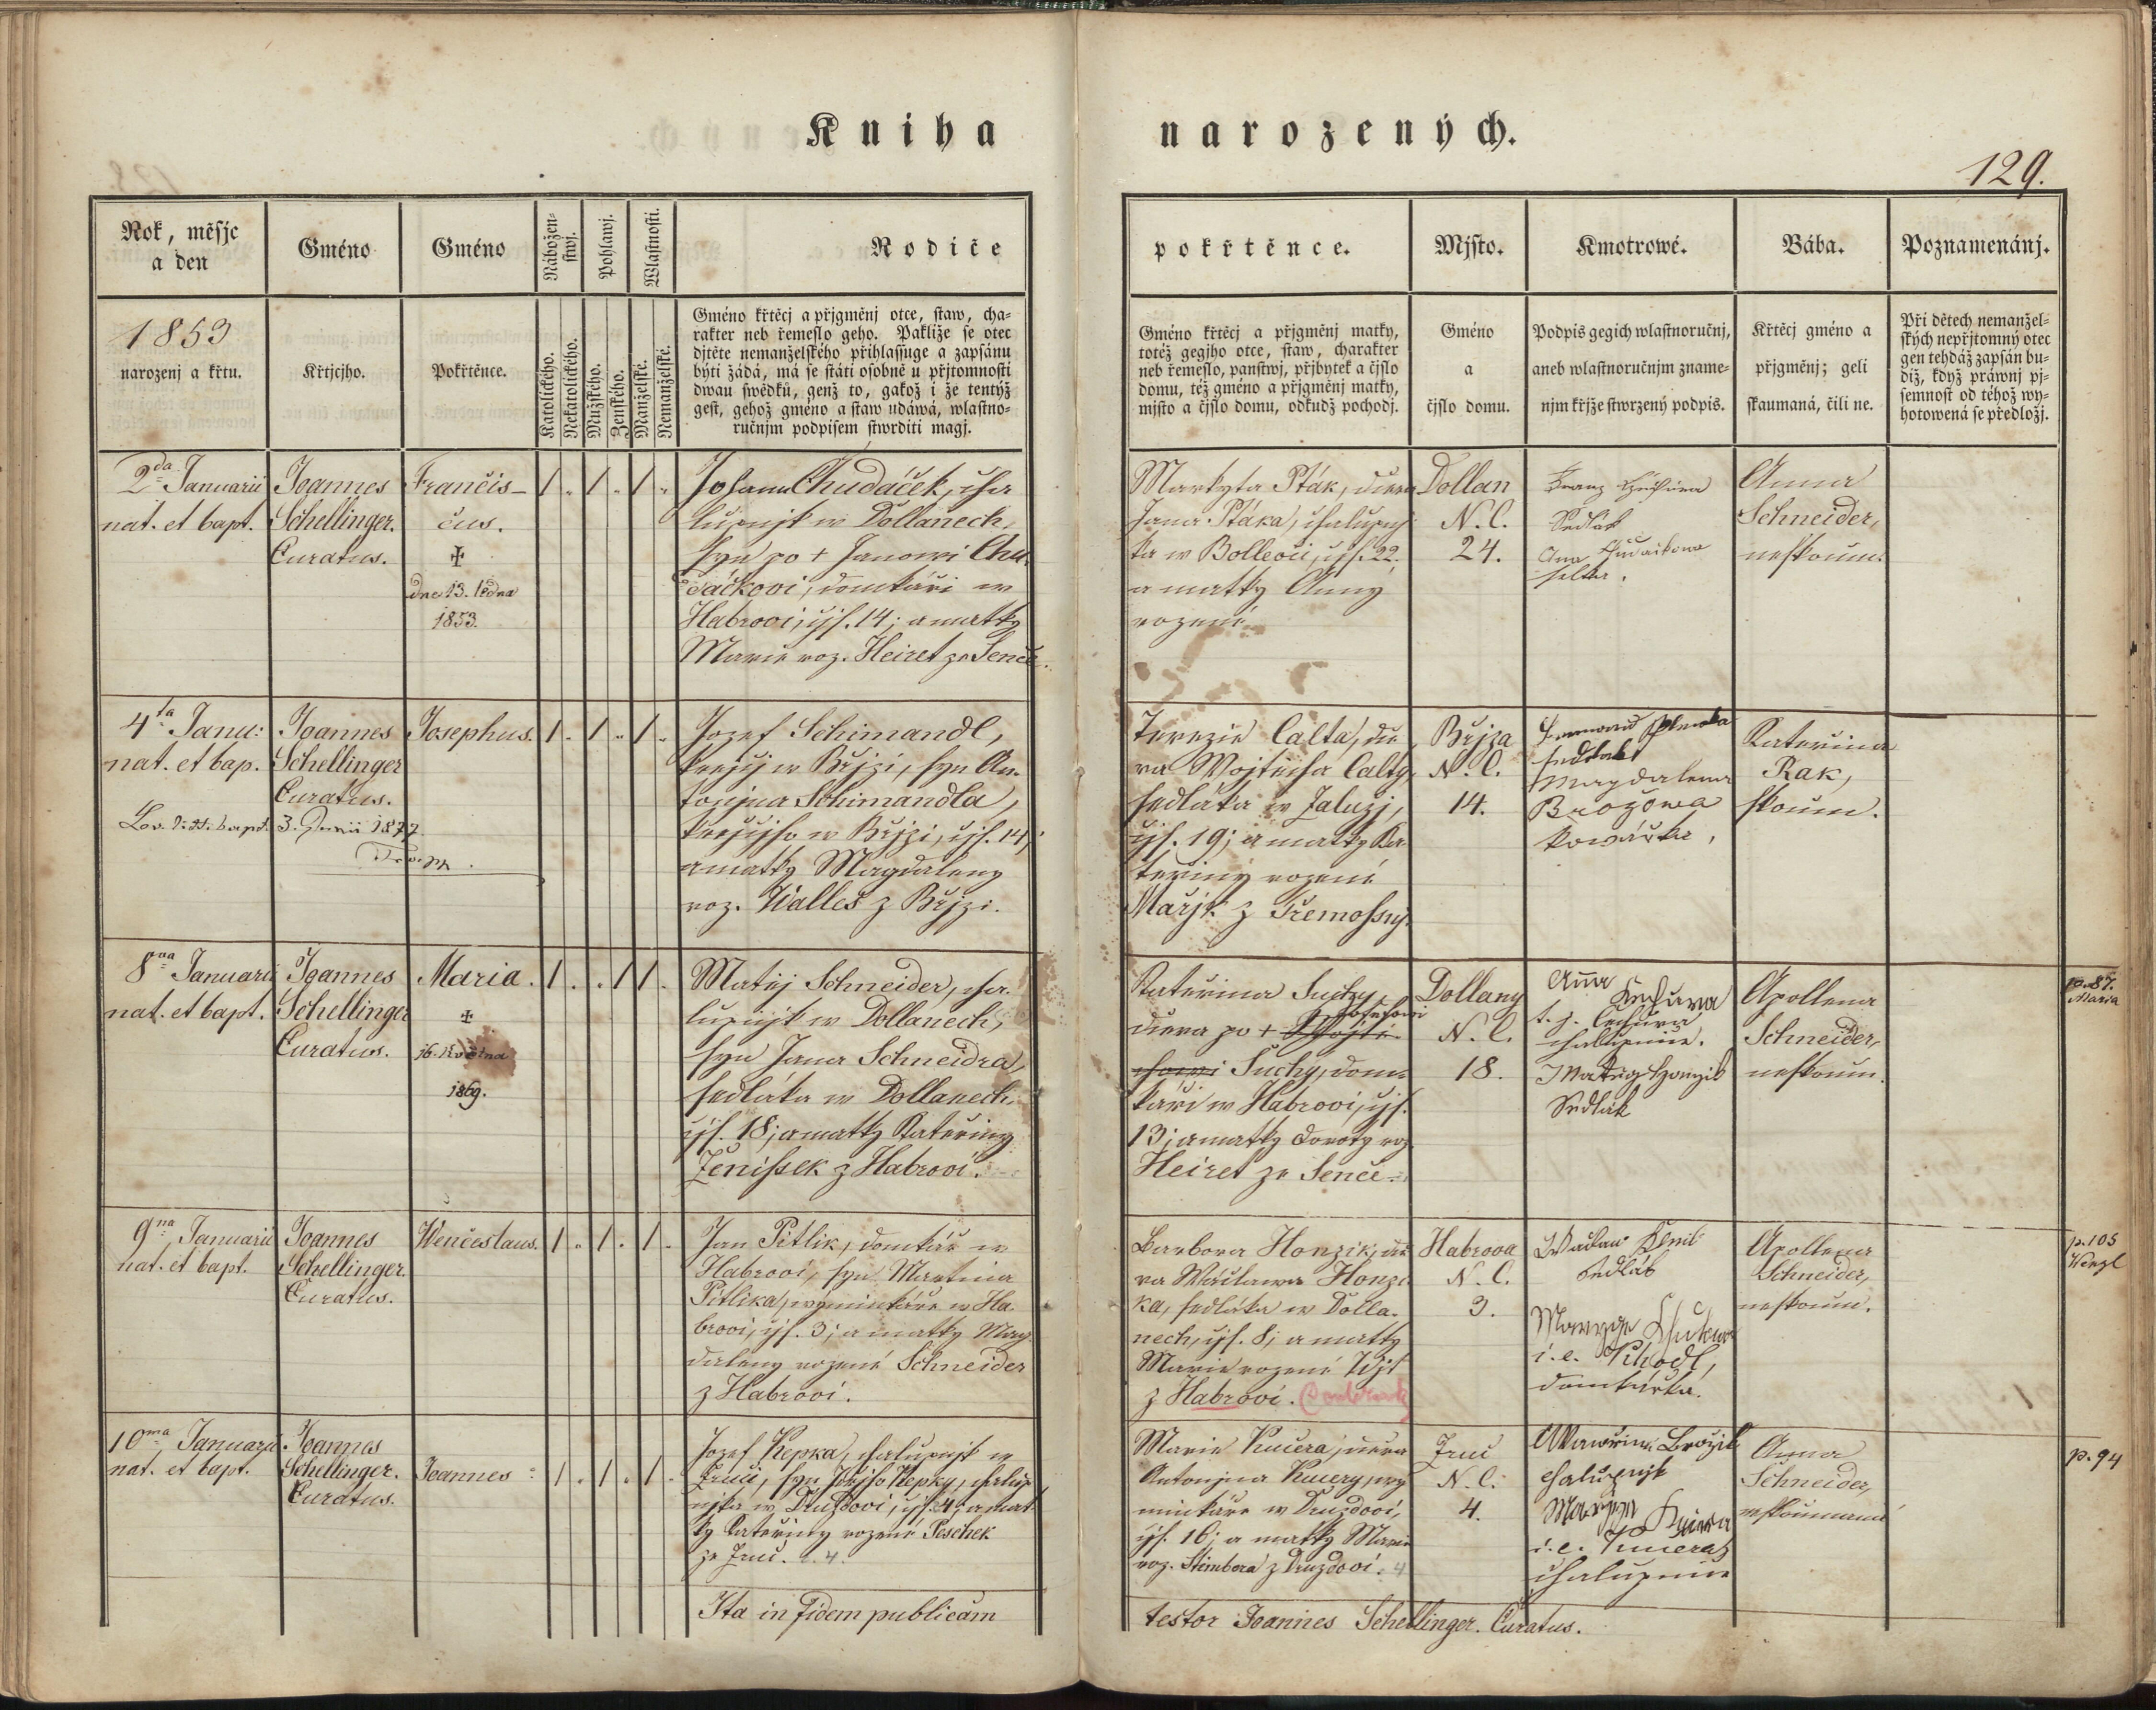 Kniha narozených.
129.
Rok, měsjc
a den
1853
narozenj a křtu.
Gméno
Křtjcjho.
Gméno
Pokřtěnce.
Nábožen-
stwj.
Pohlawj.
Wlastnosti.
Katolického.
Nekatolického.
Mužského.
Ženského.
Manželské.
Nemanželské.
Rodiče
Gméno křtěcj a přjgměnj otce, staw, cha-
rakter neb řemeslo geho. Pakliže se otec
djtěte nemanželského přihlassuge a zapsánu
býti žádá, má se státi osobně u přjtomnosti
dwau swědků, genž to, gakož i že tentýž
gest, gehož gméno a staw udáwá, wlastno-
ručnjm podpisem stwrditi magj.
pokřtěnce.
Gméno křtěcj a přjgměnj matky,
totéž gegjho otce, staw, charakter
neb řemeslo, panstwj, přjbytek a čjslo
domu, též gméno a přjgměnj matky,
mjsto a čjslo domu, odkudž pochodj.
Mjsto.
Gméno
a
čjslo domu.
Kmotrowé.
Podpis gegich wlastnoručnj,
aneb wlastnoručnjm zname-
njm křjže stwrzený podpis.
Bába.
Křtěcj gméno a
přjgměnj; geli
skaumaná, čili ne.
Poznamenánj.
Při dětech nemanžel-
ských nepřjtomný otec
gen tehdáž zapsán bu-
diž, když práwnj pj-
semnost od téhož wy-
hotowená se předložj.
2da Januarii
nat. et bapt.
Joannes
Schellinger.
Curatus.
Francis-
cus.
✠
dne 13. ledna
1853.
1 . 1 . 1 .
Johann Chudáček, cha
lupnjk w Dollanech,
syn po + Janowi Chu
dáčkovi, domkáři w
Habrovi, čjs. 14; a matky
Marie roz. Heiret ze Senče.
Markyta Pták, dcera
Jana Ptáka, chalupnj
ka w Bollevci, čjs. 22.
a matky Anny
rozené
Dollan
N. C.
24.
Franz
Sedlak
Ana
Anna
Schneider,
neskoum.
4ta Janu:
nat. et bap.
3. Junii 1877
Joannes
Schellinger
Curatus.
Josephus.
1 . 1 . 1 .
Jozef Schimandl,
kregčj w Břjzi, syn An-
tonjna Schimandla,
kregčjho w Břjzi, čjs. 14,
a matky Magdaleny
roz. Walleš z Břjzi.
Terezie Calta, dce
ra Wojtěcha Calty,
sedláka w Zaluzj,
čjs. 19; a matky Ka
teřiny rozené
Mařjk z Třemossný.
Břjza
N. C.
14.
sedlak
Magdalena
Brožowa
kowářka,
Kateřina
Rak,
skoum.
8va Januarii
nat. et bapt.
Joannes
Schellinger
Curatus.
Maria.
✠
16. Května
1869.
1 . . 1 1 .
Matěj Schneider, cha-
lupnjk w Dollanech,
syn Jana Schneidra,
sedláka w Dollanech,
čjs. 18; a matky Kateřiny
Ženíssek z Habrovi.
Kateřina Suchy,
dcera po +
Suchy, dom-
káři w Habrovi, čjs.
13; a matky Doroty roz.
Heiret ze Senče.
Dollany
N. C.
18.
Anna
Cechura
t. j. Cechura
chalupnice.
Matěg Honzik
Sedlák
Apollena
Schneider,
neskoum.
p. 87.
Maria
9na Januarii
nat. et bapt.
Joannes
Schellinger.
Curatus.
Wenceslaus.
1 . 1 . 1 .
Jan Pitlik, domkář w
Habrovi, syn Martina
Pitlika, wýminkáře w Ha-
brovi, čjs. 3; a matky Mag-
daleny rozené Schneider
z Habrovi.
Barbora Honzik, dce
ra Wáclawa Honzi-
ka, sedláka w Dolla-
nech, čjs. 8; a matky
Marie rozené Wjt
z Habrovi.
Habrova
N. C.
3.
Waclaw
Sedlák
i. e.
domkářka.
Apollena
Schneider,
neskoum.
p. 105
Wenzl
10ma Januarii
nat. et bapt.
Joannes
Schellinger.
Curatus.
Joannes
1 . 1 . 1 .
Jozef Kepka, chalupnjk w
Zruči, syn Jiřjho Kepky, chalup-
njka w Druzdovi, čjs. 4; a mat-
ky Kateřiny rozené Peschek
ze Zruč.
Marie Kucera, dcera
Antonjna Kucery, wý-
minkáře w Druzdovi,
čjs. 16; a matky Marie
roz. Steinbera z Druzdovi.
Zruč
N. C.
4.
Wawřinec Brožik
chalupnjk
Maryje Kucera
i. e. Kucera
chalupnice
Anna
Schneider,
neskoumaná
p. 94
Ita in fidem publicam testor Joannes Schellinger. Curatus.